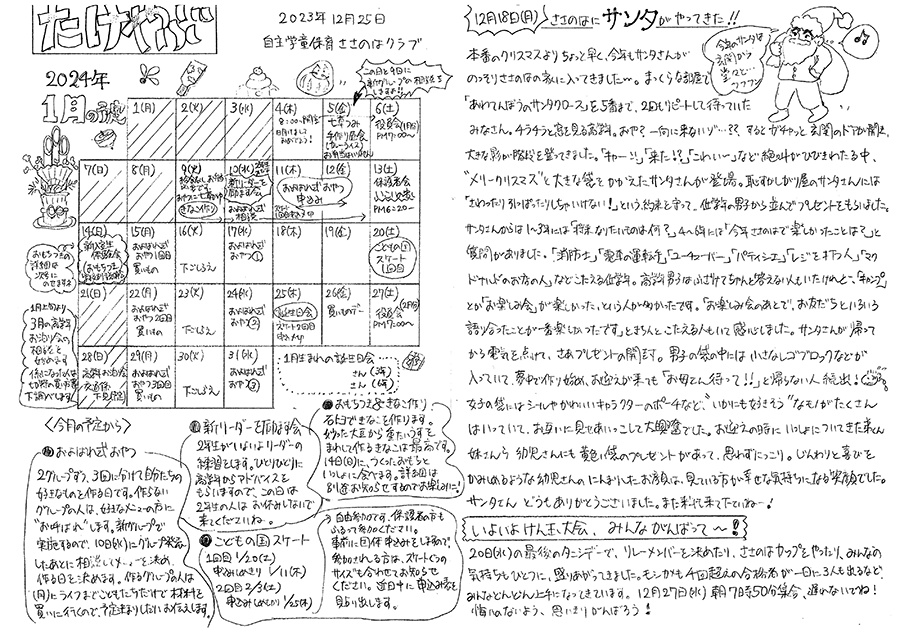 たけやぶ
2023年12月25日
自主学童保育 ささのはクラブ
2024年
1月の予定
この日と9日に
新グループの相談を
1(月)
2(火)
3(水)
4(木)
8:00〜開所
5(金)
七草つみ
手作り昼食
(カレーライス)
お弁当はいりません
6(土)
役員会(1月分)
PM17:00〜
7(日)
8(月)
9(火)
おやつに七草がゆ
きなこ作り
10(水)
新リーダーを
およばれ式
おやつ相談
11(木)
およばれ式おやつ
申込み
スケート
12(金)
13(土)
保護者会
PM16:20〜
14(日)
新入生
体験会
(おもちつき
15(月)
およばれ式
おやつ1回目
買いもの
16(火)
下ごしらえ
17(水)
およばれ式
おやつ①
18(木)
19(金)
20(土)
こどもの国
スケート
1回目
21(日)
22(月)
およばれ式
おやつ2回目
買いもの
23(火)
下ごしらえ
24(水)
およばれ式
おやつ②
25(木)
誕生日会
スケート2回目
申込〆切
26(金)
買いものデー
27(土)
役員会(2月分)
PM17:00〜
28(日)
高学年お泊り会
29(月)
およばれ式
おやつ3回目
買いもの
30(火)
下ごしらえ
31(水)
およばれ式
おやつ③
おもちつきの
詳細は
次号に
のせますよ
1月上旬より
3月の高学年
お泊り会の
相談を
始めます
1月生まれの誕生日会
さん(3年)
さん(6年)
〈今月の予定から〉
およばれ式おやつ
2グループずつ、3回に分けて自分たちの
好きなものを作る日です。作らない
グループの人は、好きなメニューの方に
“お呼ばれ”します。新グループで
実施するので、10日(水)にグループ発表
したあとに相談してメニューを決め、
作る日を決めます。作るグループの人は
(月)にライフまでこどもたちだけで材料を
買いに行くので、予定よろしくお伝えします。
新リーダーを励ます会
2年生がいよいよリーダーの
練習をします。ひとりひとりに
高学年からアドバイスを
もらいますので、この日は
2年生の人はお休みしないで
来てくださいね。
こどもの国 スケート
1回目 1/20(土)
申込みしめきり 1/11(木)
2回目 2/3(土)
申込みしめきり 1/25(木)
おもちつき&きなこ作り
石臼できなこを作ります。
炒った大豆から香りたつうすを
まわして作るきなこは最高です。
14日(日)に、つくったおもちと
いっしょに食べます。詳細は
別途お知らせするのでお楽しみに!
自由参加です。保護者の方も
ふるって参加ください。
事前に団体申込みをしますので、
参加される方は、スケートぐつの
サイズも合わせてお知らせ
ください。近日中に申込み表を
貼り出します。
12月18日(月) ささのはに サンタがやってきた!!
今年のサンタは
玄関から
堂々と
フフフン
本番のクリスマスよりちょっと早く、今年もサンタさんが
のっそりささのはの家に入ってきました〜。まっくらな部屋で
「あわてんぼうのサンタクロース」を5番まで、2回リピートして待っていた
みなさん。チラチラと窓を見る高学年。おや?一向に来ないゾ…?? するとガチャっと玄関のドアが開き、
大きな影が階段を登ってきました。「キャー!」「来た!?」「こわい〜」など絶叫がひびきわたる中、
“メリークリスマス”と大きな袋をかかえたサンタさんが登場。恥ずかしがり屋のサンタさんには
「さわったり引っぱったりしちゃいけない!」という約束を守って、低学年の男子から並んでプレゼントをもらいました。
サンタさんからは1〜3年には「将来なりたいものは何?」4〜6年には「今年ささのはで楽しかったことは?」と
質問がありました。「消防士」「電車の運転手」「ユーチューバー」「パティシエ」「レジを打つ人」「マク
ドナルドのお店の人」などこたえる低学年。高学年男子はふざけてちゃんと答えない人もいたけれど、「キャンプ」
とか「お楽しみ会」が楽しかった、という人が多かったです。「お楽しみ会のあとで、お友だちといろいろ
語り合ったことが一番楽しかったです」ときちんとこたえる人もいて感心しました。サンタさんが帰って
から電気を点けて、さあプレゼントの開封。男子の袋の中には小さなレゴブロックなどが
入っていて、夢中で作り始め、お迎えが来ても「お母さん待って!!」と帰らない人続出!
女子の袋にはシールやかわいいキャラクターのポーチなど、“いかにも女子そう”なモノがたくさん
はいっていて、お互いに見せあいっこして大興奮でした。お迎えの時にいっしょについてきた弟くん
妹さんら幼児さんにも黄色い袋のプレゼントがあって、思わずにっこり。じんわりと喜びを
かみしめるような幼児さんのにんまりしたお顔は、見ている方が幸せな気持ちになる笑顔でした。
サンタさん どうもありがとうございました。また来年来て下さいね〜!
いよいよけん玉大会、みんながんばって〜!
20日(水)の最後のタンデーで、リレーメンバーを決めたり、ささのはカップをやったり、みんなの
気持ちもひとつに、盛りあがってきました。モシカメも4回超えの合格者が一日に3人も出るなど、
みんなどんどん上手になってきています。12月27日(水)朝7時50分集合、遅れないでね!
悔いのないよう、思いきりがんばろう!